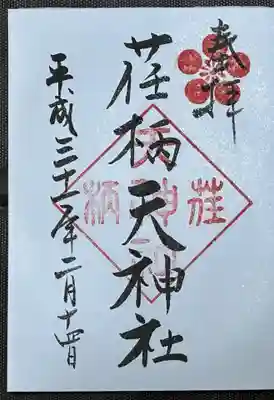 奉拝
荏柄天神社
平成三十一年二月十四日
荏柄神社